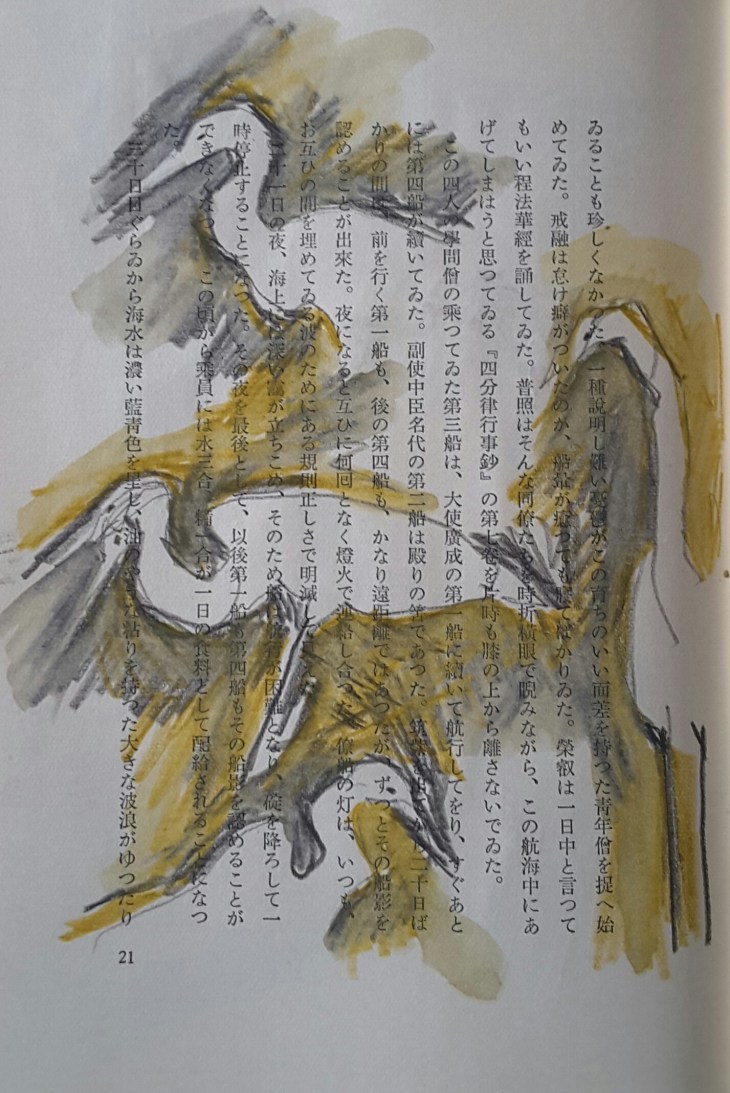 ゐることも珍しくなかつた。一種説明し難い憂鬱がこの育ちのいい面差を持つた青年僧を捉へ始
めてゐた。戒融は怠け癖がついたのか、船暈が癒つても寝てばかりゐた。榮叡は一日中と言つて
もいい程法華經を誦してゐた。普照はそんな同僚たちを時折横眼で睨みながら、この航海中にあ
げてしまはうと思つてゐる『四分律行事鈔』の第七卷を片時も膝の上から離さないでゐた。
この四人の學問僧の乘つてゐた第三船は、大使廣成の第一船に續いて航行してをり、すぐあと
には第四船が續いてゐた。副使中臣名代の第二船は殿りの筈であつた。筑紫を出てから二十日ば
かりの間は、前を行く第一船も、後の第四船も、かなり遠距離ではあつたが、ずつとその船影を
認めることが出來た。夜になると互ひに何回となく燈火で連絡し合つた。僚船の灯は、いつも、
お互ひの間を埋めてゐる波のためにある規則正しさで明滅して見えた。
二十一日の夜、海上には深い霧が立ちこめ、そのため船は航行が困難となり、碇を降ろして一
時停止することになつた。その夜を最後として、以後第一船も第四船もその船影を認めることが
できなくなつ この頃から乘員には水三合、糒一合が一日の食料として配給されることになつ
た。
三十日目ぐらゐから海水は濃い藍青色を呈し、油のやうな粘りを持つた大きな波浪がゆつたり
21